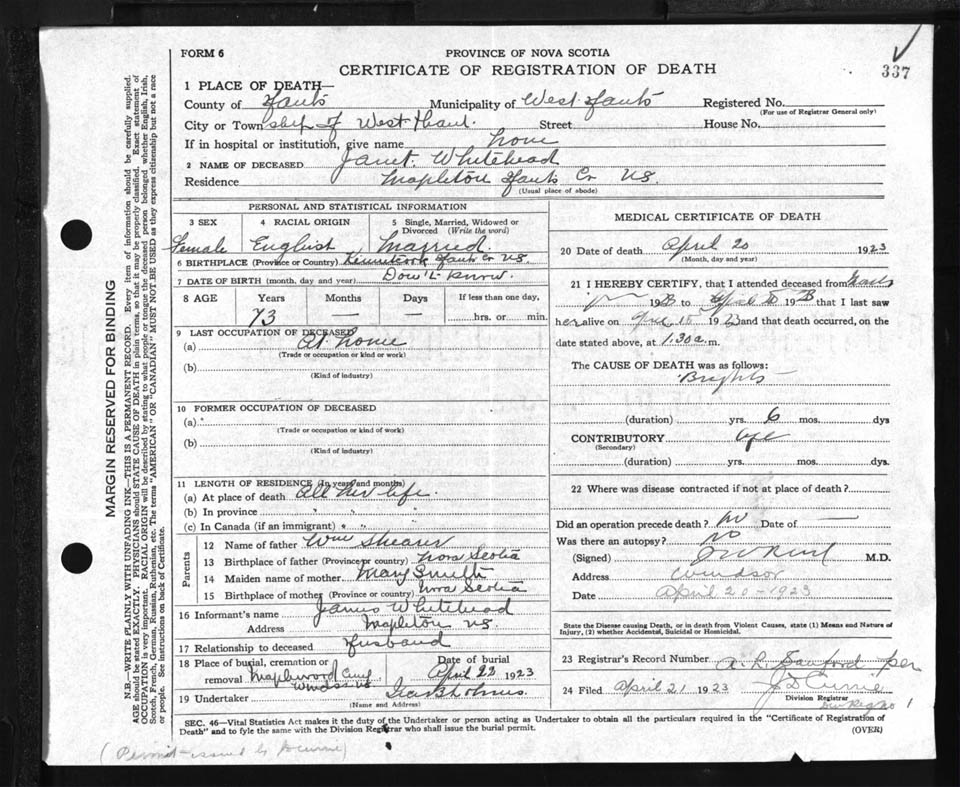 337
FORM 6
PROVINCE OF NOVA SCOTIA
CERTIFICATE OF REGISTRATION OF DEATH
1 PLACE OF DEATH—
County of Hants Municipality of West Hants Registered No.
(For use of Registrar General only)
City or Township of West Hant. Street House No.
If in hospital or institution, give name home
2 NAME OF DECEASED Janet Whitehead
Residence Mapleton Hants Co NS.
(Usual place of abode)
PERSONAL AND STATISTICAL INFORMATION
3 SEX 4 RACIAL ORIGIN 5 Single, Married, Widowed or Divorced (Write the word)
Female English Married.
6 BIRTHPLACE (Province or Country) Hants Co NS
7 DATE OF BIRTH (month, day and year) Don't Know.
8 AGE Years Months Days If less than one day,
73 — — hrs. or min.
9 LAST OCCUPATION OF DECEASED
(a) At home
(Trade or occupation or kind of work)
(b)
(Kind of industry)
10 FORMER OCCUPATION OF DECEASED
(a)
(Trade or occupation or kind of work)
(b)
(Kind of industry)
11 LENGTH OF RESIDENCE (In years and months)
(a) At place of death All her life.
(b) In province " " "
(c) In Canada (if an immigrant) " "
Parents
12 Name of father Wm Shearer
13 Birthplace of father (Province or country) Nova Scotia
14 Maiden name of mother Mary Smith
15 Birthplace of mother (Province or country) Nova Scotia
16 Informant's name James Whitehead
Address Mapleton NS.
17 Relationship to deceased Husband
18 Place of burial, cremation or removal Maplewood Cemy Windsor NS Date of burial April 22 1923
19 Undertaker
(Name and Address)
MEDICAL CERTIFICATE OF DEATH
20 Date of death April 20 1923
(Month, day and year)
21 I HEREBY CERTIFY, that I attended deceased from
1923 to April 20 1923 that I last saw
her alive on April 15 1923 and that death occurred, on the
date stated above, at 1.30 a.m.
The CAUSE OF DEATH was as follows:
Brights
(duration) yrs. 6 mos. dys
CONTRIBUTORY age
(Secondary)
(duration) yrs. mos. dys.
22 Where was disease contracted if not at place of death?
Did an operation precede death? no Date of —
Was there an autopsy? no
(Signed) M.D.
Address Windsor
Date April 20-1923
State the Disease causing Death, or in death from Violent Causes, state (1) Means and Nature of
Injury, (2) whether Accidental, Suicidal or Homicidal.
23 Registrar's Record Number A. R. Sanford per
24 Filed April 21 1923 J D Currie
Division Registrar
SEC. 46—Vital Statistics Act makes it the duty of the Undertaker or person acting as Undertaker to obtain all the particulars required in the "Certificate of Registration of
Death" and to fyle the same with the Division Registrar who shall issue the burial permit. (OVER)
(Permit issued by
MARGIN RESERVED FOR BINDING
N.B.—WRITE PLAINLY WITH UNFADING INK—THIS IS A PERMANENT RECORD. Every item of information should be carefully supplied.
AGE should be stated EXACTLY. PHYSICIANS should STATE CAUSE OF DEATH in plain terms, so that it may be properly classified. Exact statement of
OCCUPATION is very important. RACIAL ORIGIN will be described by stating to what people or tongue the deceased person belonged, whether English, Irish,
Scotch, French, German, Russian, Ruthenian, etc. The terms "AMERICAN" OR "CANADIAN" MUST NOT BE USED as they express citizenship but not a race
or people. See instructions on back of Certificate.